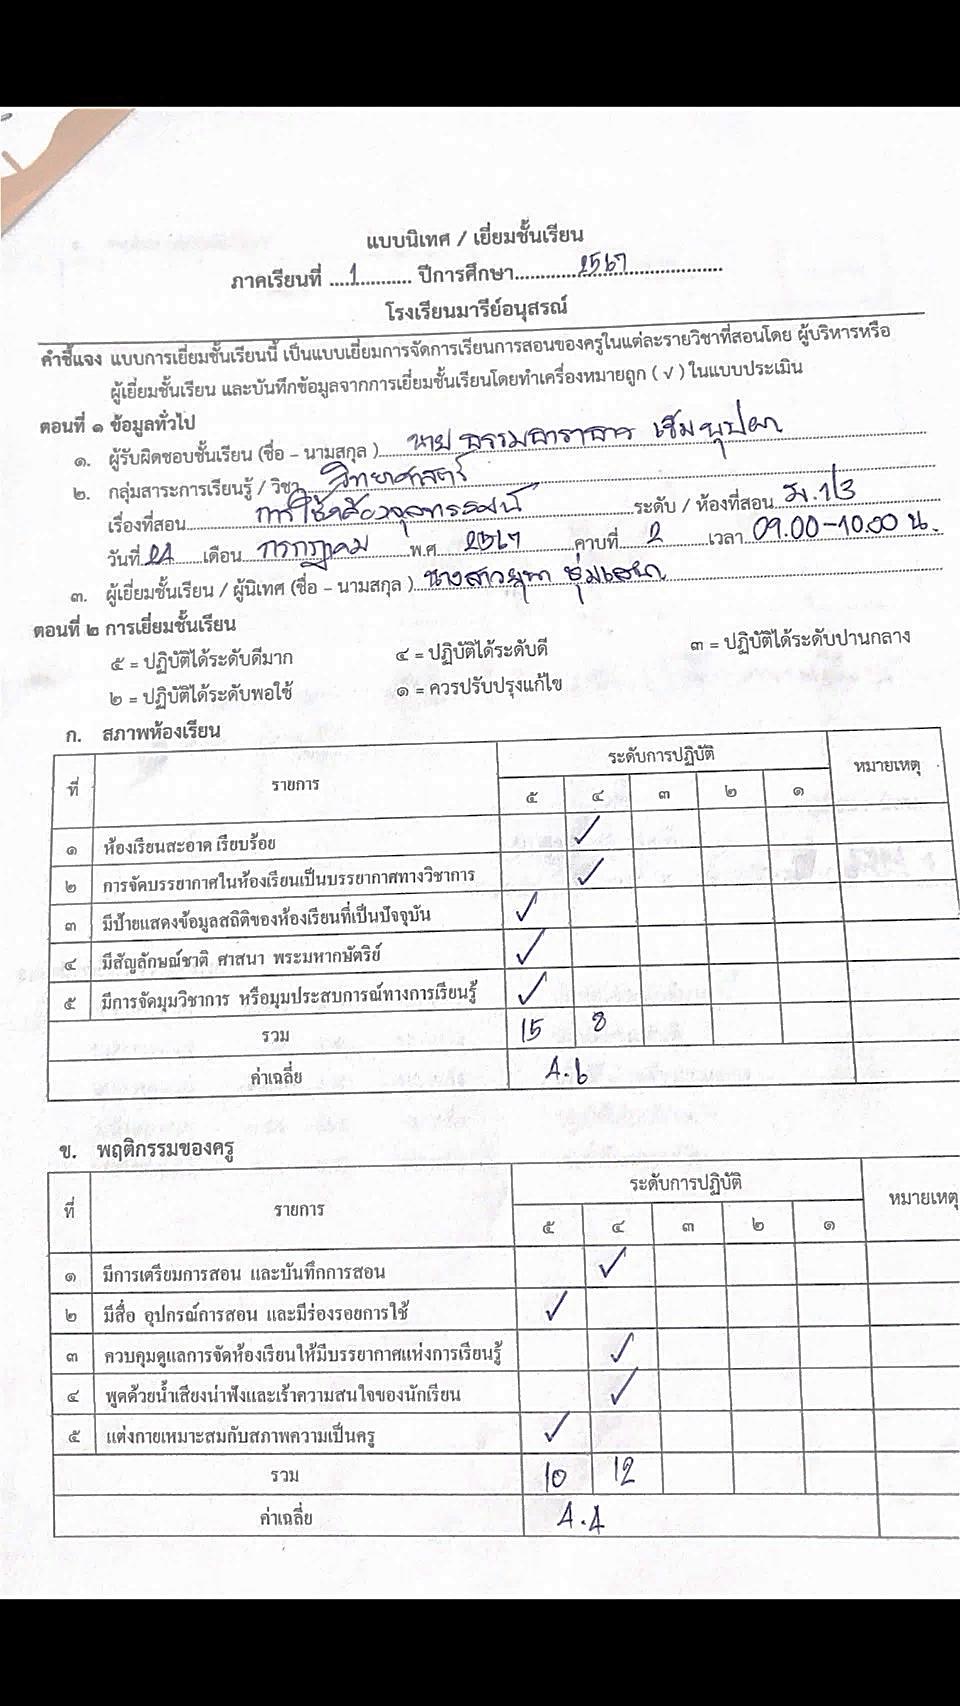 แบบนิเทศ / เยี่ยมชั้นเรียน
ภาคเรียนที่ ....1............ ปีการศึกษา............2567......................
โรงเรียนมารีย์อนุสรณ์
คำชี้แจง แบบการเยี่ยมชั้นเรียนนี้ เป็นแบบเยี่ยมการจัดการเรียนการสอนของครูในแต่ละรายวิชาที่สอนโดย ผู้บริหารหรือ
ผู้เยี่ยมชั้นเรียน และบันทึกข้อมูลจากการเยี่ยมชั้นเรียนโดยทำเครื่องหมายถูก ( √ ) ในแบบประเมิน
ตอนที่ ๑ ข้อมูลทั่วไป
๑. ผู้รับผิดชอบชั้นเรียน (ชื่อ – นามสกุล ) นาย ธรรมธาราธาร
๒. กลุ่มสาระการเรียนรู้ / วิชา วิทยาศาสตร์
เรื่องที่สอน การใช้กล้องจุลทรรศน์ ระดับ / ห้องที่สอน ม.1/3
วันที่ 24 เดือน กรกฎาคม พ.ศ. 2567 คาบที่ 2 เวลา 09.00-10.00 น.
๓. ผู้เยี่ยมชั้นเรียน / ผู้นิเทศ (ชื่อ – นามสกุล ) นางสาวยุพา
ตอนที่ ๒ การเยี่ยมชั้นเรียน
๕ = ปฏิบัติได้ระดับดีมาก ๔ = ปฏิบัติได้ระดับดี ๓ = ปฏิบัติได้ระดับปานกลาง
๒ = ปฏิบัติได้ระดับพอใช้ ๑ = ควรปรับปรุงแก้ไข
ก. สภาพห้องเรียน
ที่ รายการ ระดับการปฏิบัติ หมายเหตุ
๕ ๔ ๓ ๒ ๑
๑ ห้องเรียนสะอาด เรียบร้อย ✓
๒ การจัดบรรยากาศในห้องเรียนเป็นบรรยากาศทางวิชาการ ✓
๓ มีป้ายแสดงข้อมูลสถิติของห้องเรียนที่เป็นปัจจุบัน ✓
๔ มีสัญลักษณ์ชาติ ศาสนา พระมหากษัตริย์ ✓
๕ มีการจัดมุมวิชาการ หรือมุมประสบการณ์ทางการเรียนรู้ ✓
รวม 15 8
ค่าเฉลี่ย 4.6
ข. พฤติกรรมของครู
ที่ รายการ ระดับการปฏิบัติ หมายเหตุ
๕ ๔ ๓ ๒ ๑
๑ มีการเตรียมการสอน และบันทึกการสอน ✓
๒ มีสื่อ อุปกรณ์การสอน และมีร่องรอยการใช้ ✓
๓ ควบคุมดูแลการจัดห้องเรียนให้มีบรรยากาศแห่งการเรียนรู้ ✓
๔ พูดด้วยน้ำเสียงน่าฟังและเร้าความสนใจของนักเรียน ✓
๕ แต่งกายเหมาะสมกับสภาพความเป็นครู ✓
รวม 10 12
ค่าเฉลี่ย 4.4